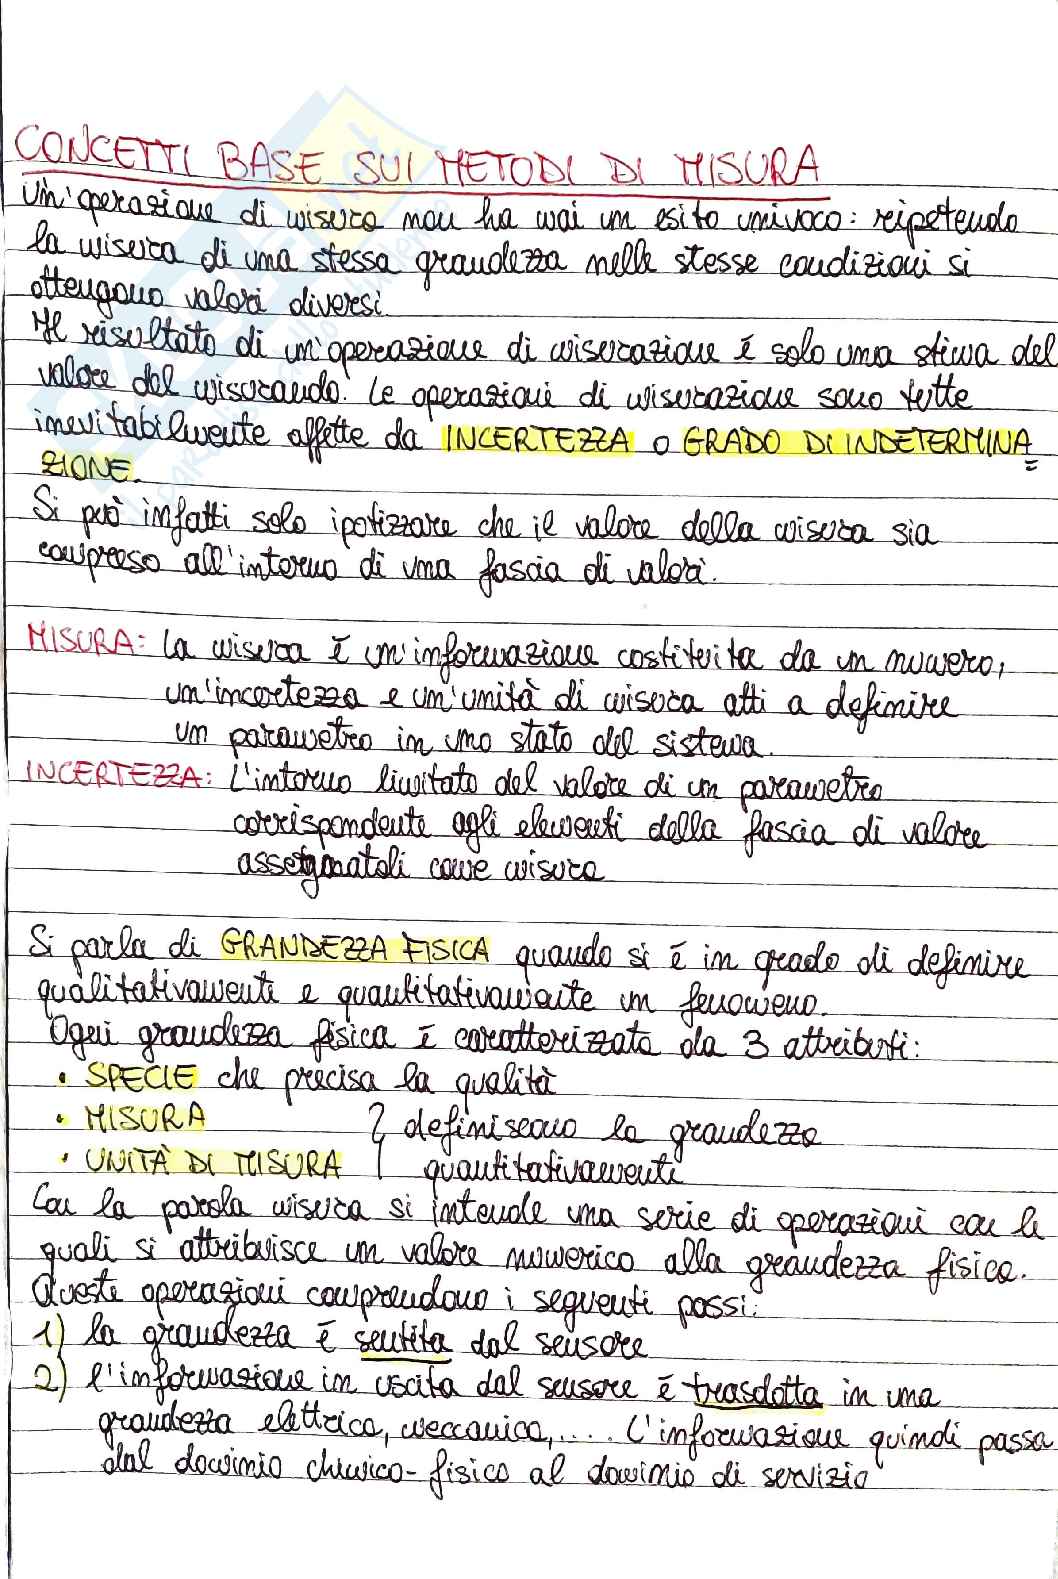 CONCETTI BASE SUI METODI DI MISURA
Un'operazione di misura non ha mai un esito univoco: ripetendo
la misura di una stessa grandezza nelle stesse condizioni si
ottengono valori diversi
Il risultato di un'operazione di misurazione è solo una stima del
valore del misurando. Le operazioni di misurazione sono tutte
inevitabilmente affette da INCERTEZZA o GRADO DI INDETERMINA
ZIONE.
Si può infatti solo ipotizzare che il valore della misura sia
compreso all'interno di una fascia di valori.
MISURA: La misura è un'informazione costituita da un numero,
un'incertezza e un'unità di misura atti a definire
un parametro in uno stato del sistema.
INCERTEZZA: L'intorno limitato del valore di un parametro
corrispondente agli elementi della fascia di valore
assegnatoli come misura
Si parla di GRANDEZZA FISICA quando si è in grado di definire
qualitativamente e quantitativamente un fenomeno.
Ogni grandezza fisica è caratterizzata da 3 attributi:
• SPECIE che precisa la qualità
• MISURA } definiscono la grandezza
• UNITÀ DI MISURA quantitativamenti
Con la parola misura si intende una serie di operazioni con le
quali si attribuisce un valore numerico alla grandezza fisica.
Queste operazioni comprendono i seguenti passi:
1) la grandezza è sentita dal sensore
2) l'informazione in uscita dal sensore è trasdotta in una
grandezza elettrica, meccanica,.... L'informazione quindi passa
dal dominio chimico-fisico al dominio di servizio